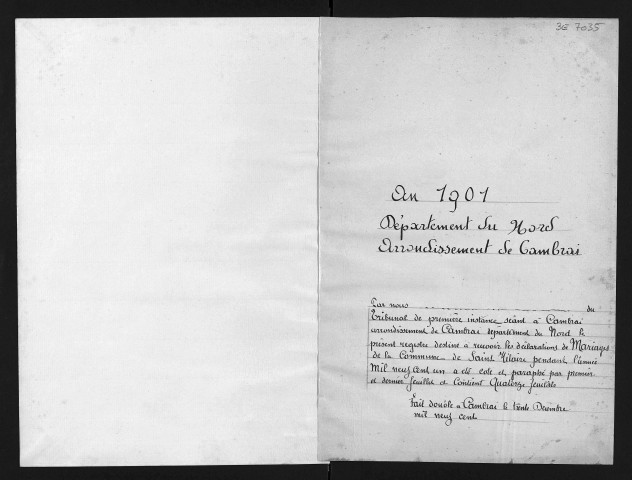 3E 7035
An 1901
Département du Nord
Arrondissement de Cambrai
Par nous du
Tribunal de première instance séant à Cambrai
arrondissement de Cambrai département du Nord le
présent registre destiné à recevoir les déclarations de Mariages
de la Commune de Saint Hilaire pendant l'année
Mil neuf cent un a été coté et paraphé par premier
et dernier feuillet et Contient Quatorze feuillets
Fait double à Cambrai le trente Décembre
mil neuf cent